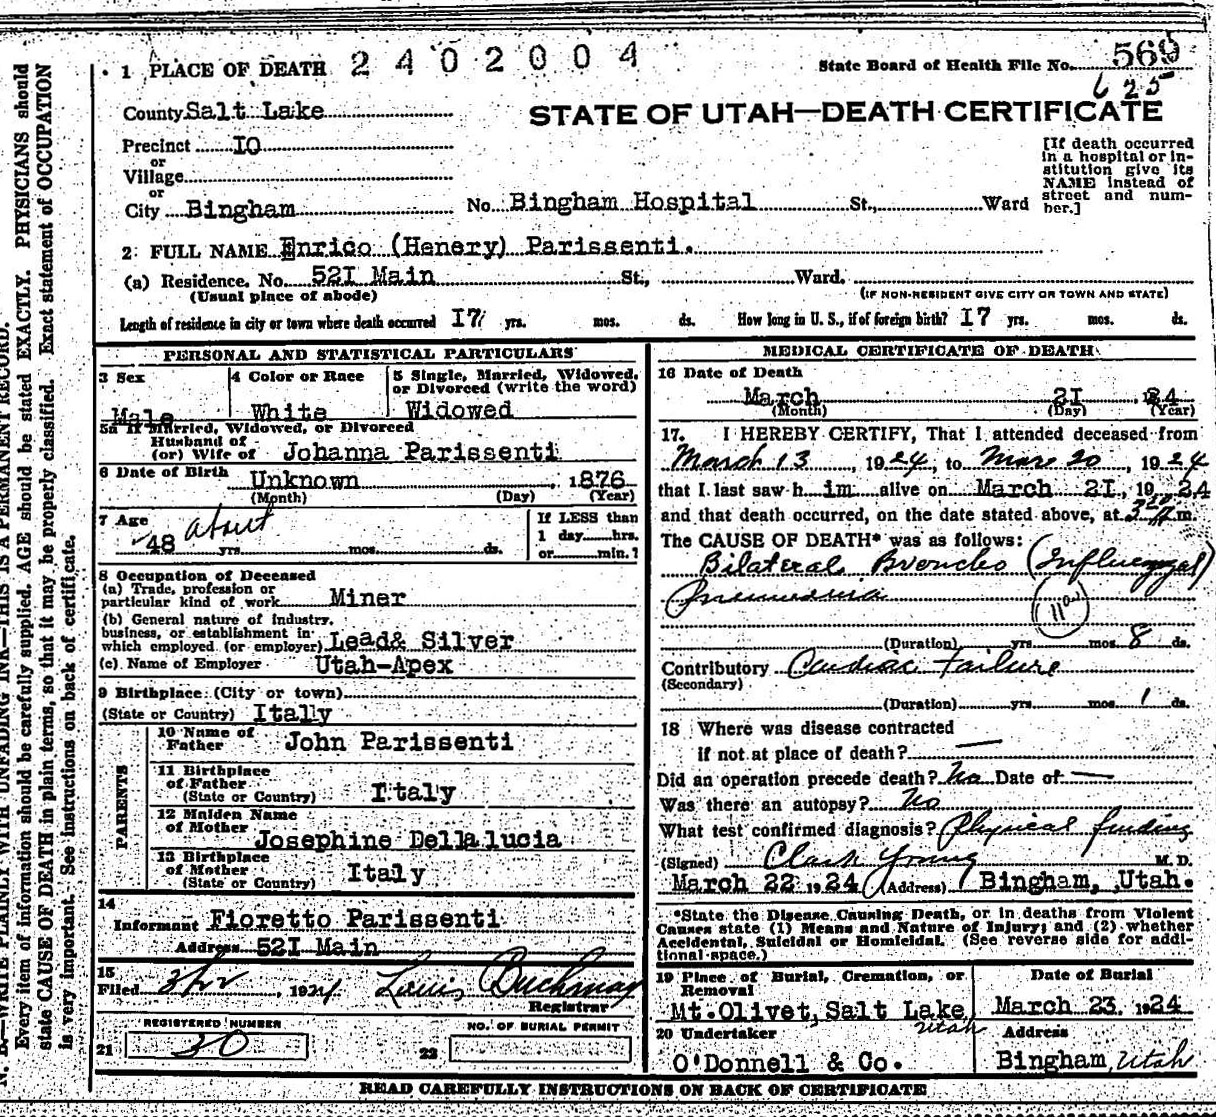 1 PLACE OF DEATH 2402004
State Board of Health File No. 569
625
County Salt Lake
STATE OF UTAH—DEATH CERTIFICATE
Precinct IO
or
Village
or
City Bingham No. Bingham Hospital St., Ward
[If death occurred in a hospital or in-
stitution give its
NAME instead of
street and num-
ber.]
2 FULL NAME Enrico (Henery) Parissenti.
(a) Residence. No. 52I Main St., Ward.
(Usual place of abode) (IF NON-RESIDENT GIVE CITY OR TOWN AND STATE)
Length of residence in city or town where death occurred I7 yrs. mos. ds. How long in U. S., if of foreign birth? I7 yrs. mos. ds.
PERSONAL AND STATISTICAL PARTICULARS
3 Sex 4 Color or Race 5 Single, Married, Widowed,
or Divorced (write the word)
Male White Widowed
5a If Married, Widowed, or Divorced
Husband of
(or) Wife of Johanna Parissenti
6 Date of Birth Unknown , 1876
(Month) (Day) (Year)
7 Age about If LESS than
48 yrs. mos. ds. 1 day hrs.
or min.?
8 Occupation of Deceased
(a) Trade, profession or
particular kind of work Miner
(b) General nature of industry,
business, or establishment in
which employed (or employer) Lead& Silver
(c) Name of Employer Utah-Apex
9 Birthplace (City or town)
(State or Country) Italy
PARENTS
10 Name of
Father John Parissenti
11 Birthplace
of Father
(State or Country) Italy
12 Maiden Name
of Mother Josephine Dellalucia
13 Birthplace
of Mother
(State or Country) Italy
14
Informant Fioretto Parissenti
Address 52I Main
15
Filed , 1924 Louis Buchman
Registrar
REGISTERED NUMBER NO. OF BURIAL PERMIT
21 30 22
MEDICAL CERTIFICATE OF DEATH
16 Date of Death
March 2I 1924
(Month) (Day) (Year)
17. I HEREBY CERTIFY, That I attended deceased from
March 13, 1924, to Mar 20, 1924
that I last saw him alive on March 2I, 1924
and that death occurred, on the date stated above, at m.
The CAUSE OF DEATH* was as follows:
Bilateral Broncho (Influenzal)
Pneumonia
11a
(Duration) yrs. mos. 8 ds.
Contributory Cardiac Failure
(Secondary)
(Duration) yrs. mos. 1 ds.
18 Where was disease contracted
if not at place of death? —
Did an operation precede death? No Date of —
Was there an autopsy? No
What test confirmed diagnosis? Physical finding
(Signed) Clark Young M. D.
March 22 1924 (Address) Bingham, Utah.
*State the Disease Causing Death, or in deaths from Violent
Causes state (1) Means and Nature of Injury; and (2) whether
Accidental, Suicidal or Homicidal. (See reverse side for addi-
tional space.)
19 Place of Burial, Cremation, or
Removal Date of Burial
Mt.Olivet, Salt Lake, Utah March 23. 1924
20 Undertaker Address
O'Donnell & Co. Bingham, Utah
READ CAREFULLY INSTRUCTIONS ON BACK OF CERTIFICATE
N. B.—WRITE PLAINLY WITH UNFADING INK—THIS IS A PERMANENT RECORD.
Every item of information should be carefully supplied. AGE should be stated EXACTLY. PHYSICIANS should
state CAUSE OF DEATH in plain terms, so that it may be properly classified. Exact statement of OCCUPATION
is very important. See instructions on back of certificate.